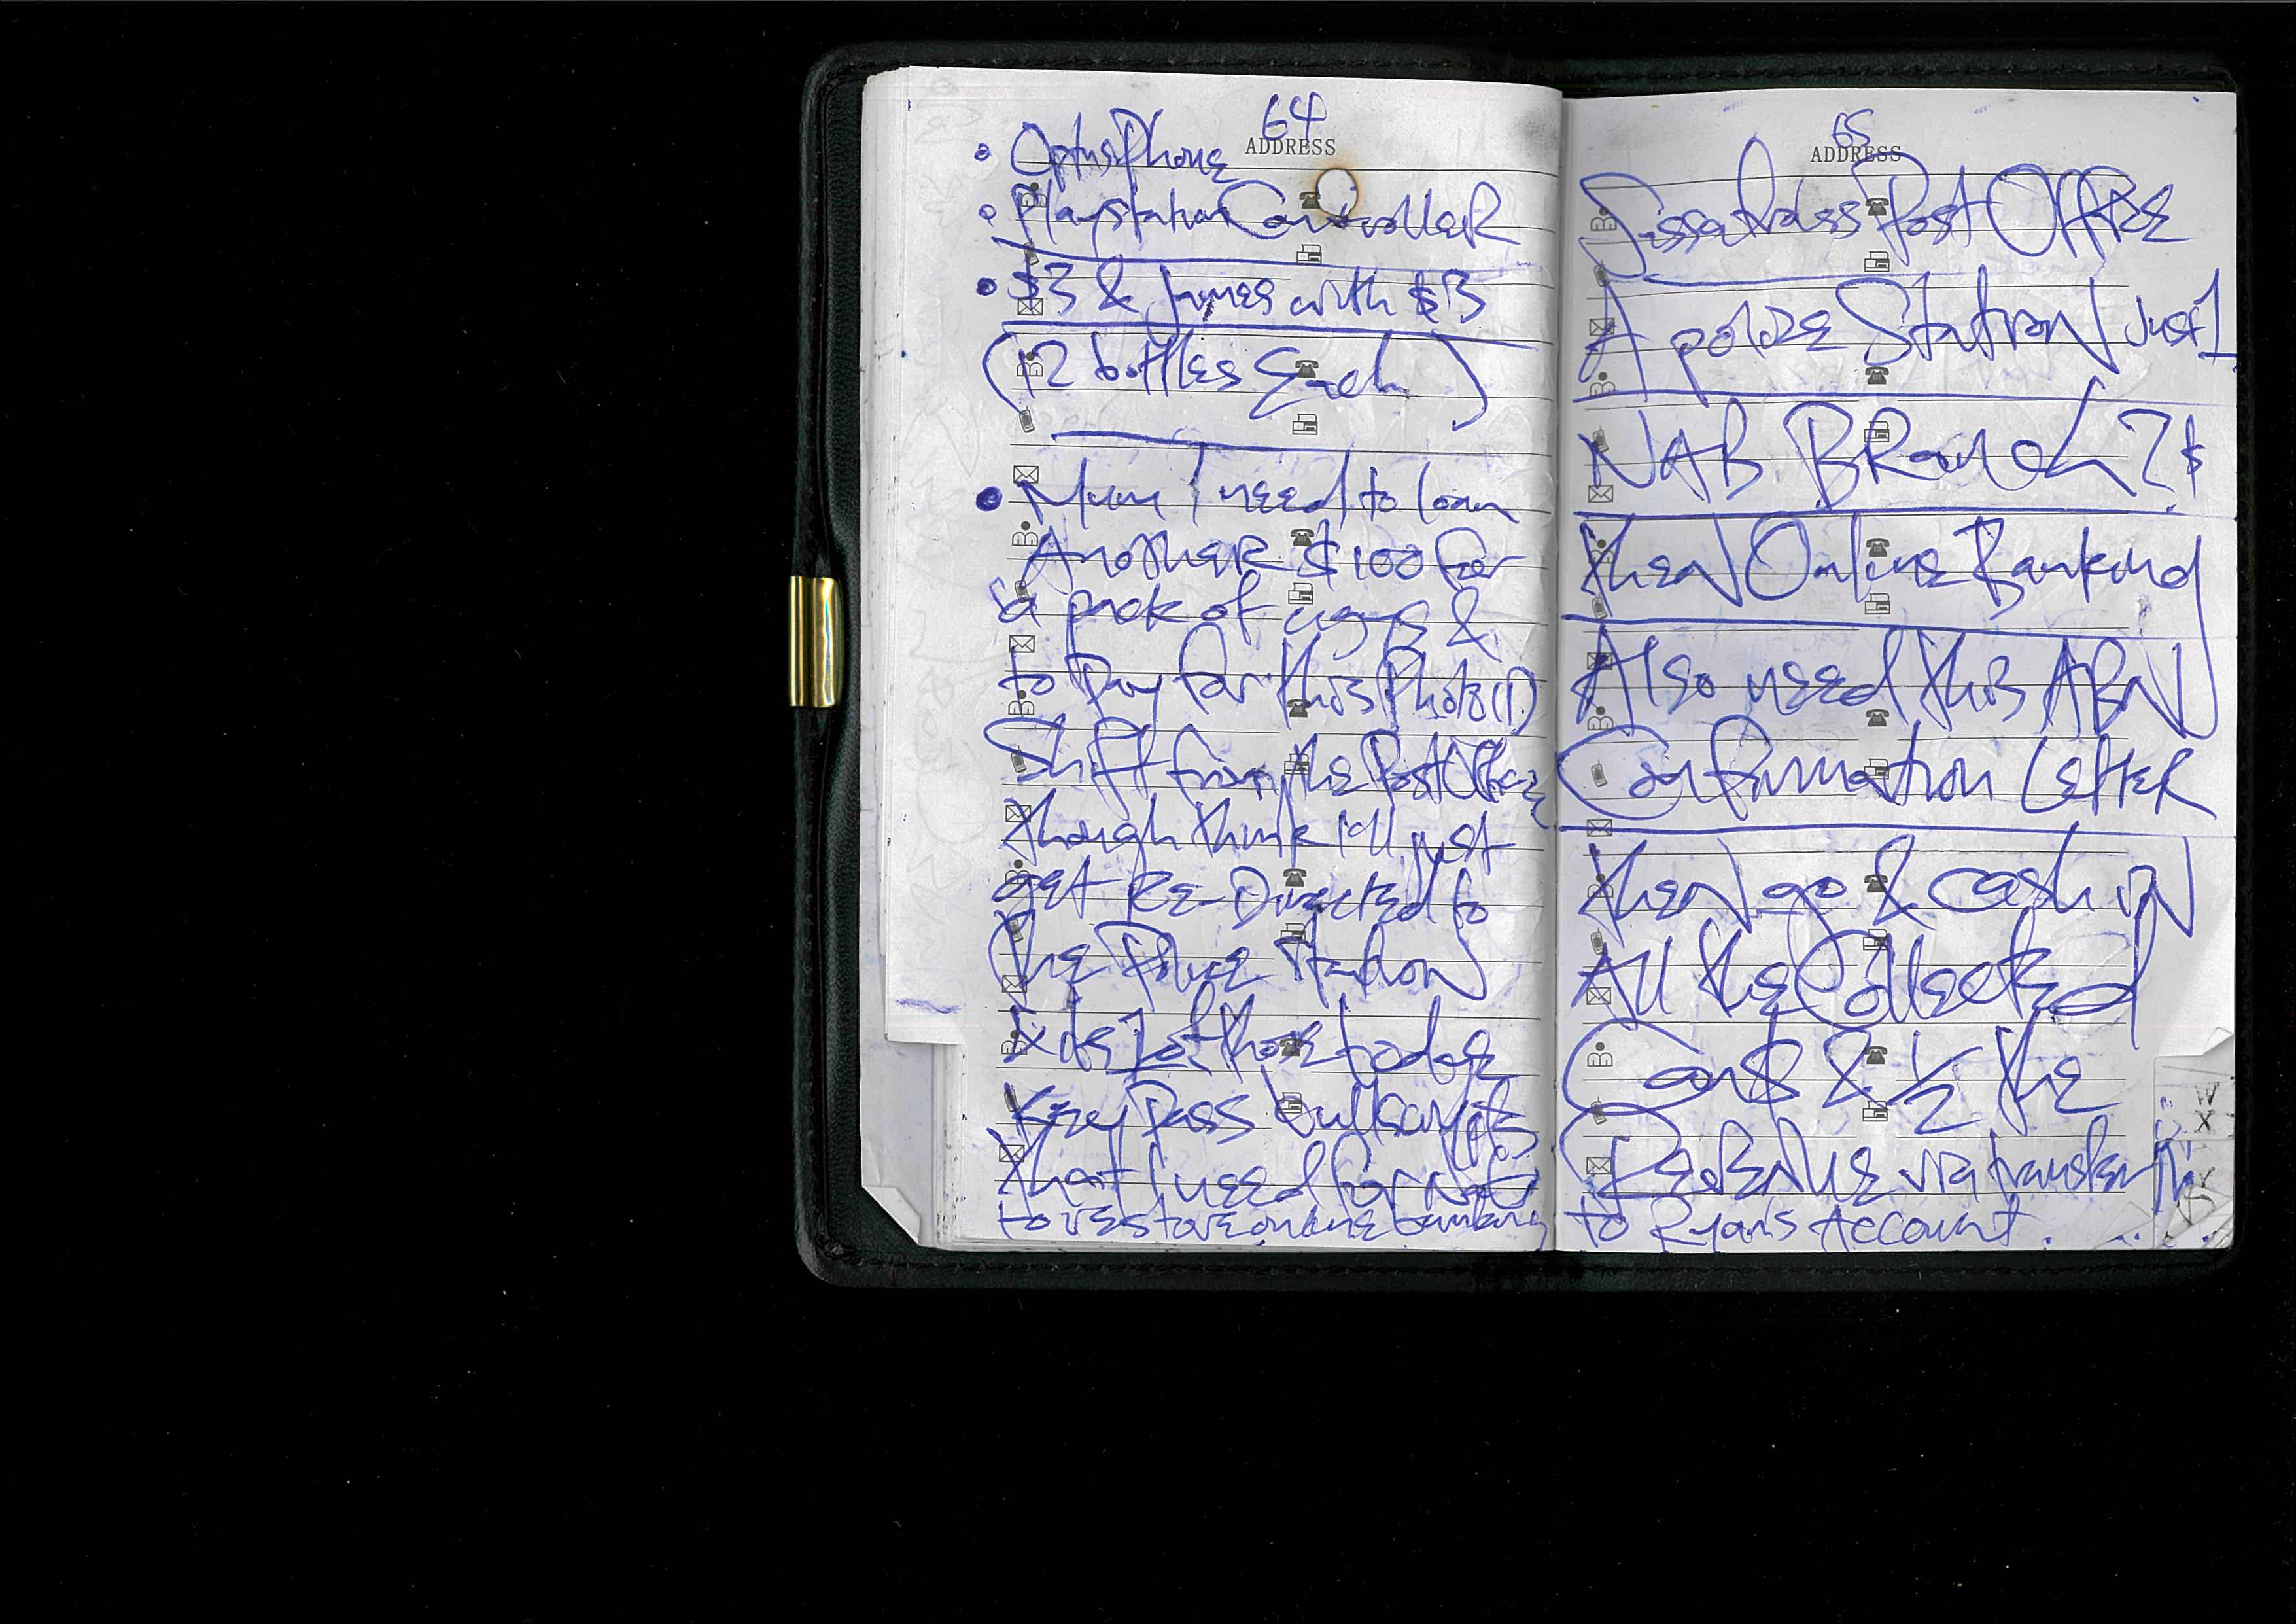 64
ADDRESS
• Optus Phone
• Playstation ControlleR
• $3 & James with $3
(12 bottles Each)
• Mum I need to loan
AnotheR $100 for
a pack of ciggs &
to Pay for this Photo (1)
Shift from the Post Office
though think I'll just
get Re-Directed to
the Police Station
those todge
KeyPass bullshit
that I need for NAB
to restore online banking
65
ADDRESS
Post Office
A police StatioN Just 1
NAB BRanch? $
TheN Online Banking
Also need this ABN
Confirmation LetteR
TheN go & cash iN
All the Collected
Cans & 1/2 the
ReveNue via transfer
to Ryan's Account.
W
X